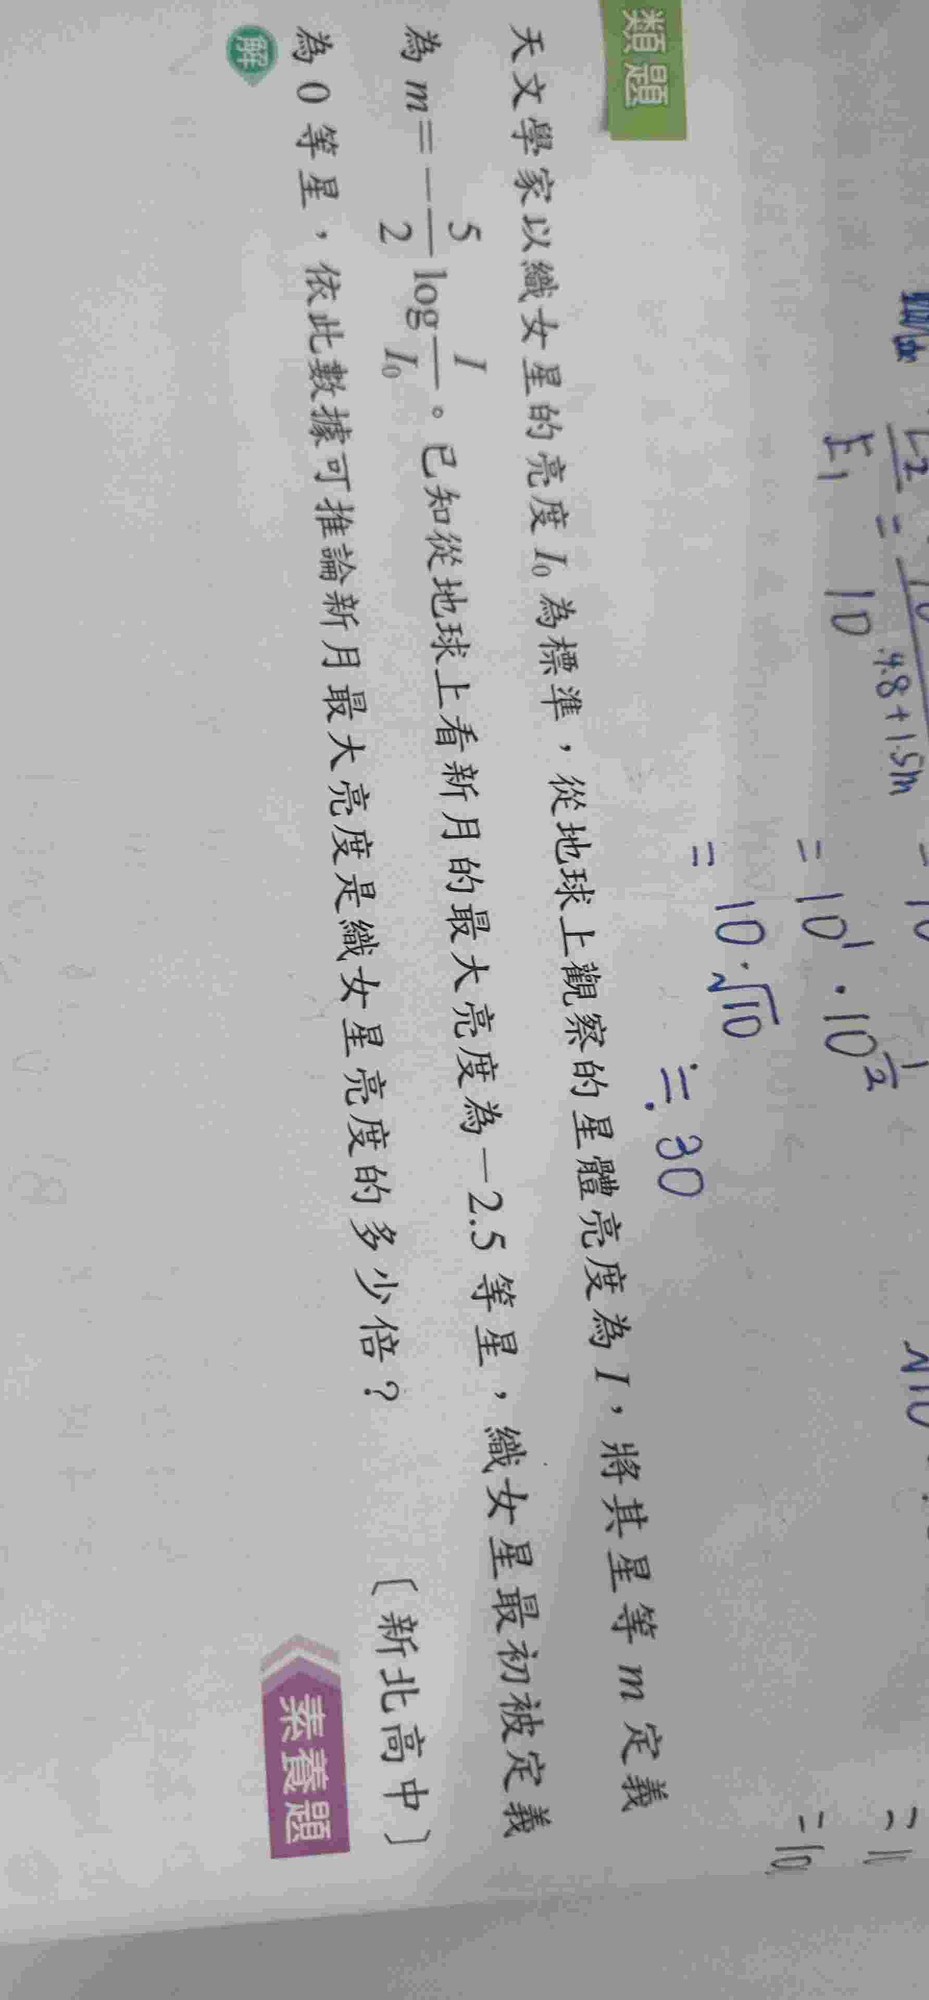 E₂/E₁ =
10^(4.8+1.5m)
= 10¹ · 10^(1/2)
= 10 · √10
≒ 30
= 10
類題
天文學家以織女星的亮度 I₀ 為標準，從地球上觀察的星體亮度為 I，將其星等 m 定義
為 m＝－5/2 log I/I₀。已知從地球上看新月的最大亮度為－2.5 等星，織女星最初被定義
為 0 等星，依此數據可推論新月最大亮度是織女星亮度的多少倍？
〔新北高中〕
解
素養題